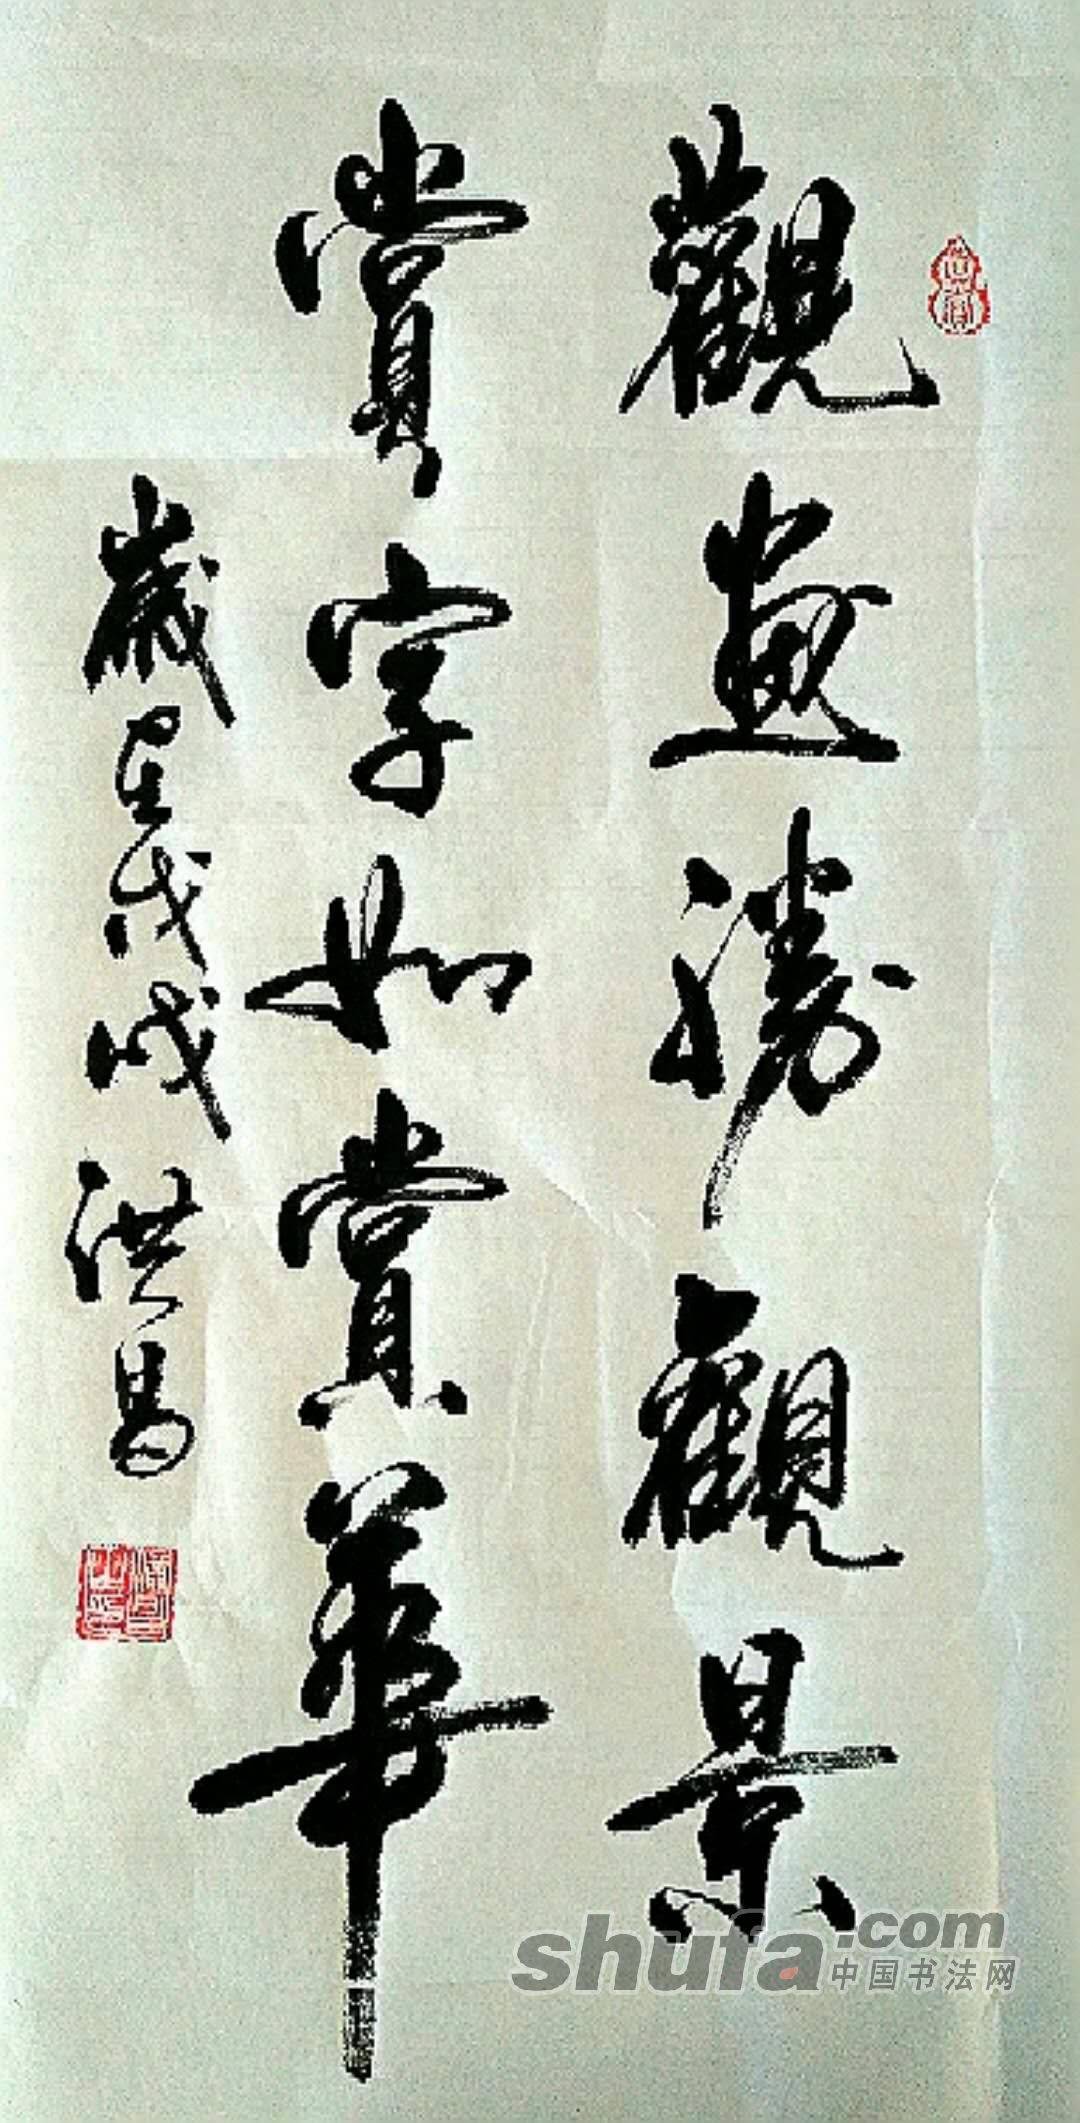 觀畫勝觀景
賞字如賞華
歲星戊戌洪昌
shufa.com
中国书法网